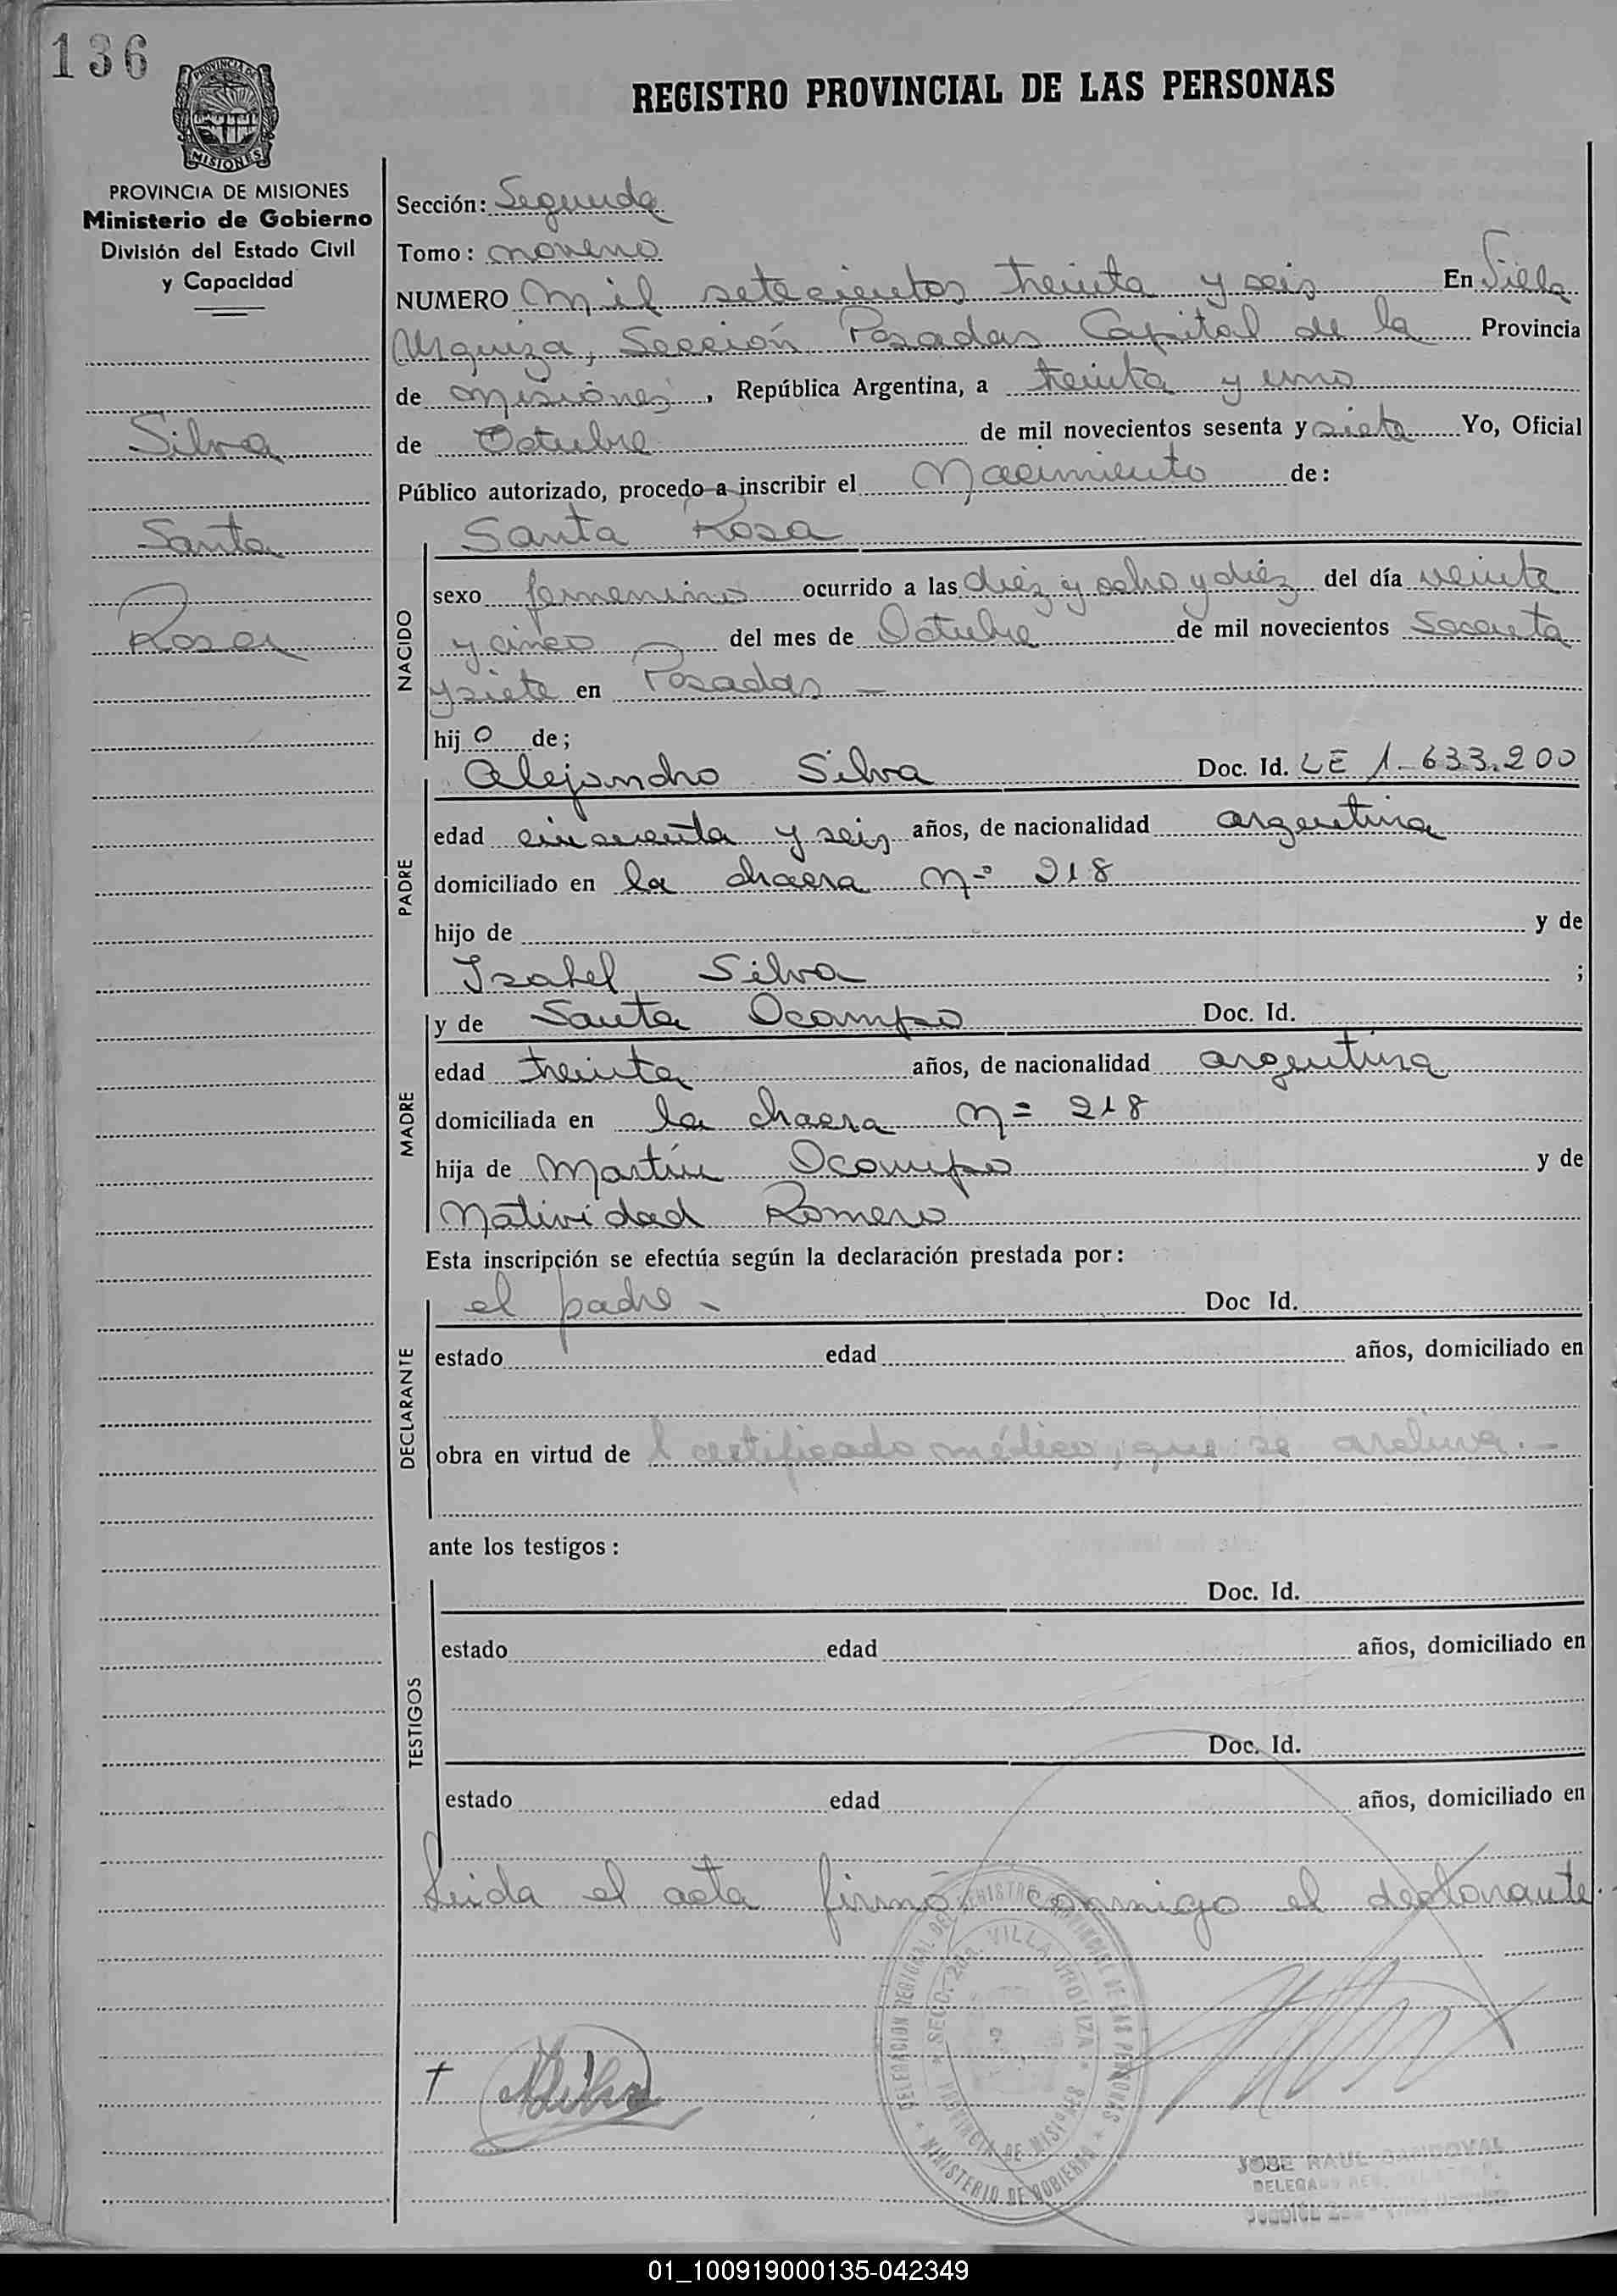 136
PROVINCIA DE MISIONES
REGISTRO PROVINCIAL DE LAS PERSONAS
PROVINCIA DE MISIONES
Ministerio de Gobierno
División del Estado Civil
y Capacidad
Silva
Santa
Rosa
Sección: Segunda
Tomo: noveno
NUMERO Mil setecientos treinta y seis En Villa
Urquiza, Sección Posadas Capital de la Provincia
de Misiones, República Argentina, a treinta y uno
de Octubre de mil novecientos sesenta y siete Yo, Oficial
Público autorizado, procedo a inscribir el Nacimiento de:
Santa Rosa
NACIDO
sexo femenino ocurrido a las diez y ocho y diez del día veinte
y cinco del mes de Octubre de mil novecientos sesenta
y siete en Posadas -
hij o de;
PADRE
Alejandro Silva Doc. Id. LE 1.633.200
edad cincuenta y seis años, de nacionalidad argentina
domiciliado en la chacra Nº 218
hijo de y de
Isabel Silva ;
MADRE
y de Santa Ocampo Doc. Id.
edad treinta años, de nacionalidad argentina
domiciliada en la chacra Nº 218
hija de Martín Ocampo y de
Natividad Romero
Esta inscripción se efectúa según la declaración prestada por:
DECLARANTE
el padre - Doc Id.
estado edad años, domiciliado en
obra en virtud de l certificado médico, que se archiva. -
ante los testigos:
TESTIGOS
Doc. Id.
estado edad años, domiciliado en
Doc. Id.
estado edad años, domiciliado en
Leida el acta firmó conmigo el declarante.
DELEGACION REGIONAL DEL REGISTRO PROVINCIAL DE LAS PERSONAS * MINISTERIO DE GOBIERNO *
SECC. 2da. VILLA URQUIZA * PROVINCIA DE MISIONES *
† ASilva
JOSE RAUL SANDOVAL
DELEGADO
01_100919000135-042349